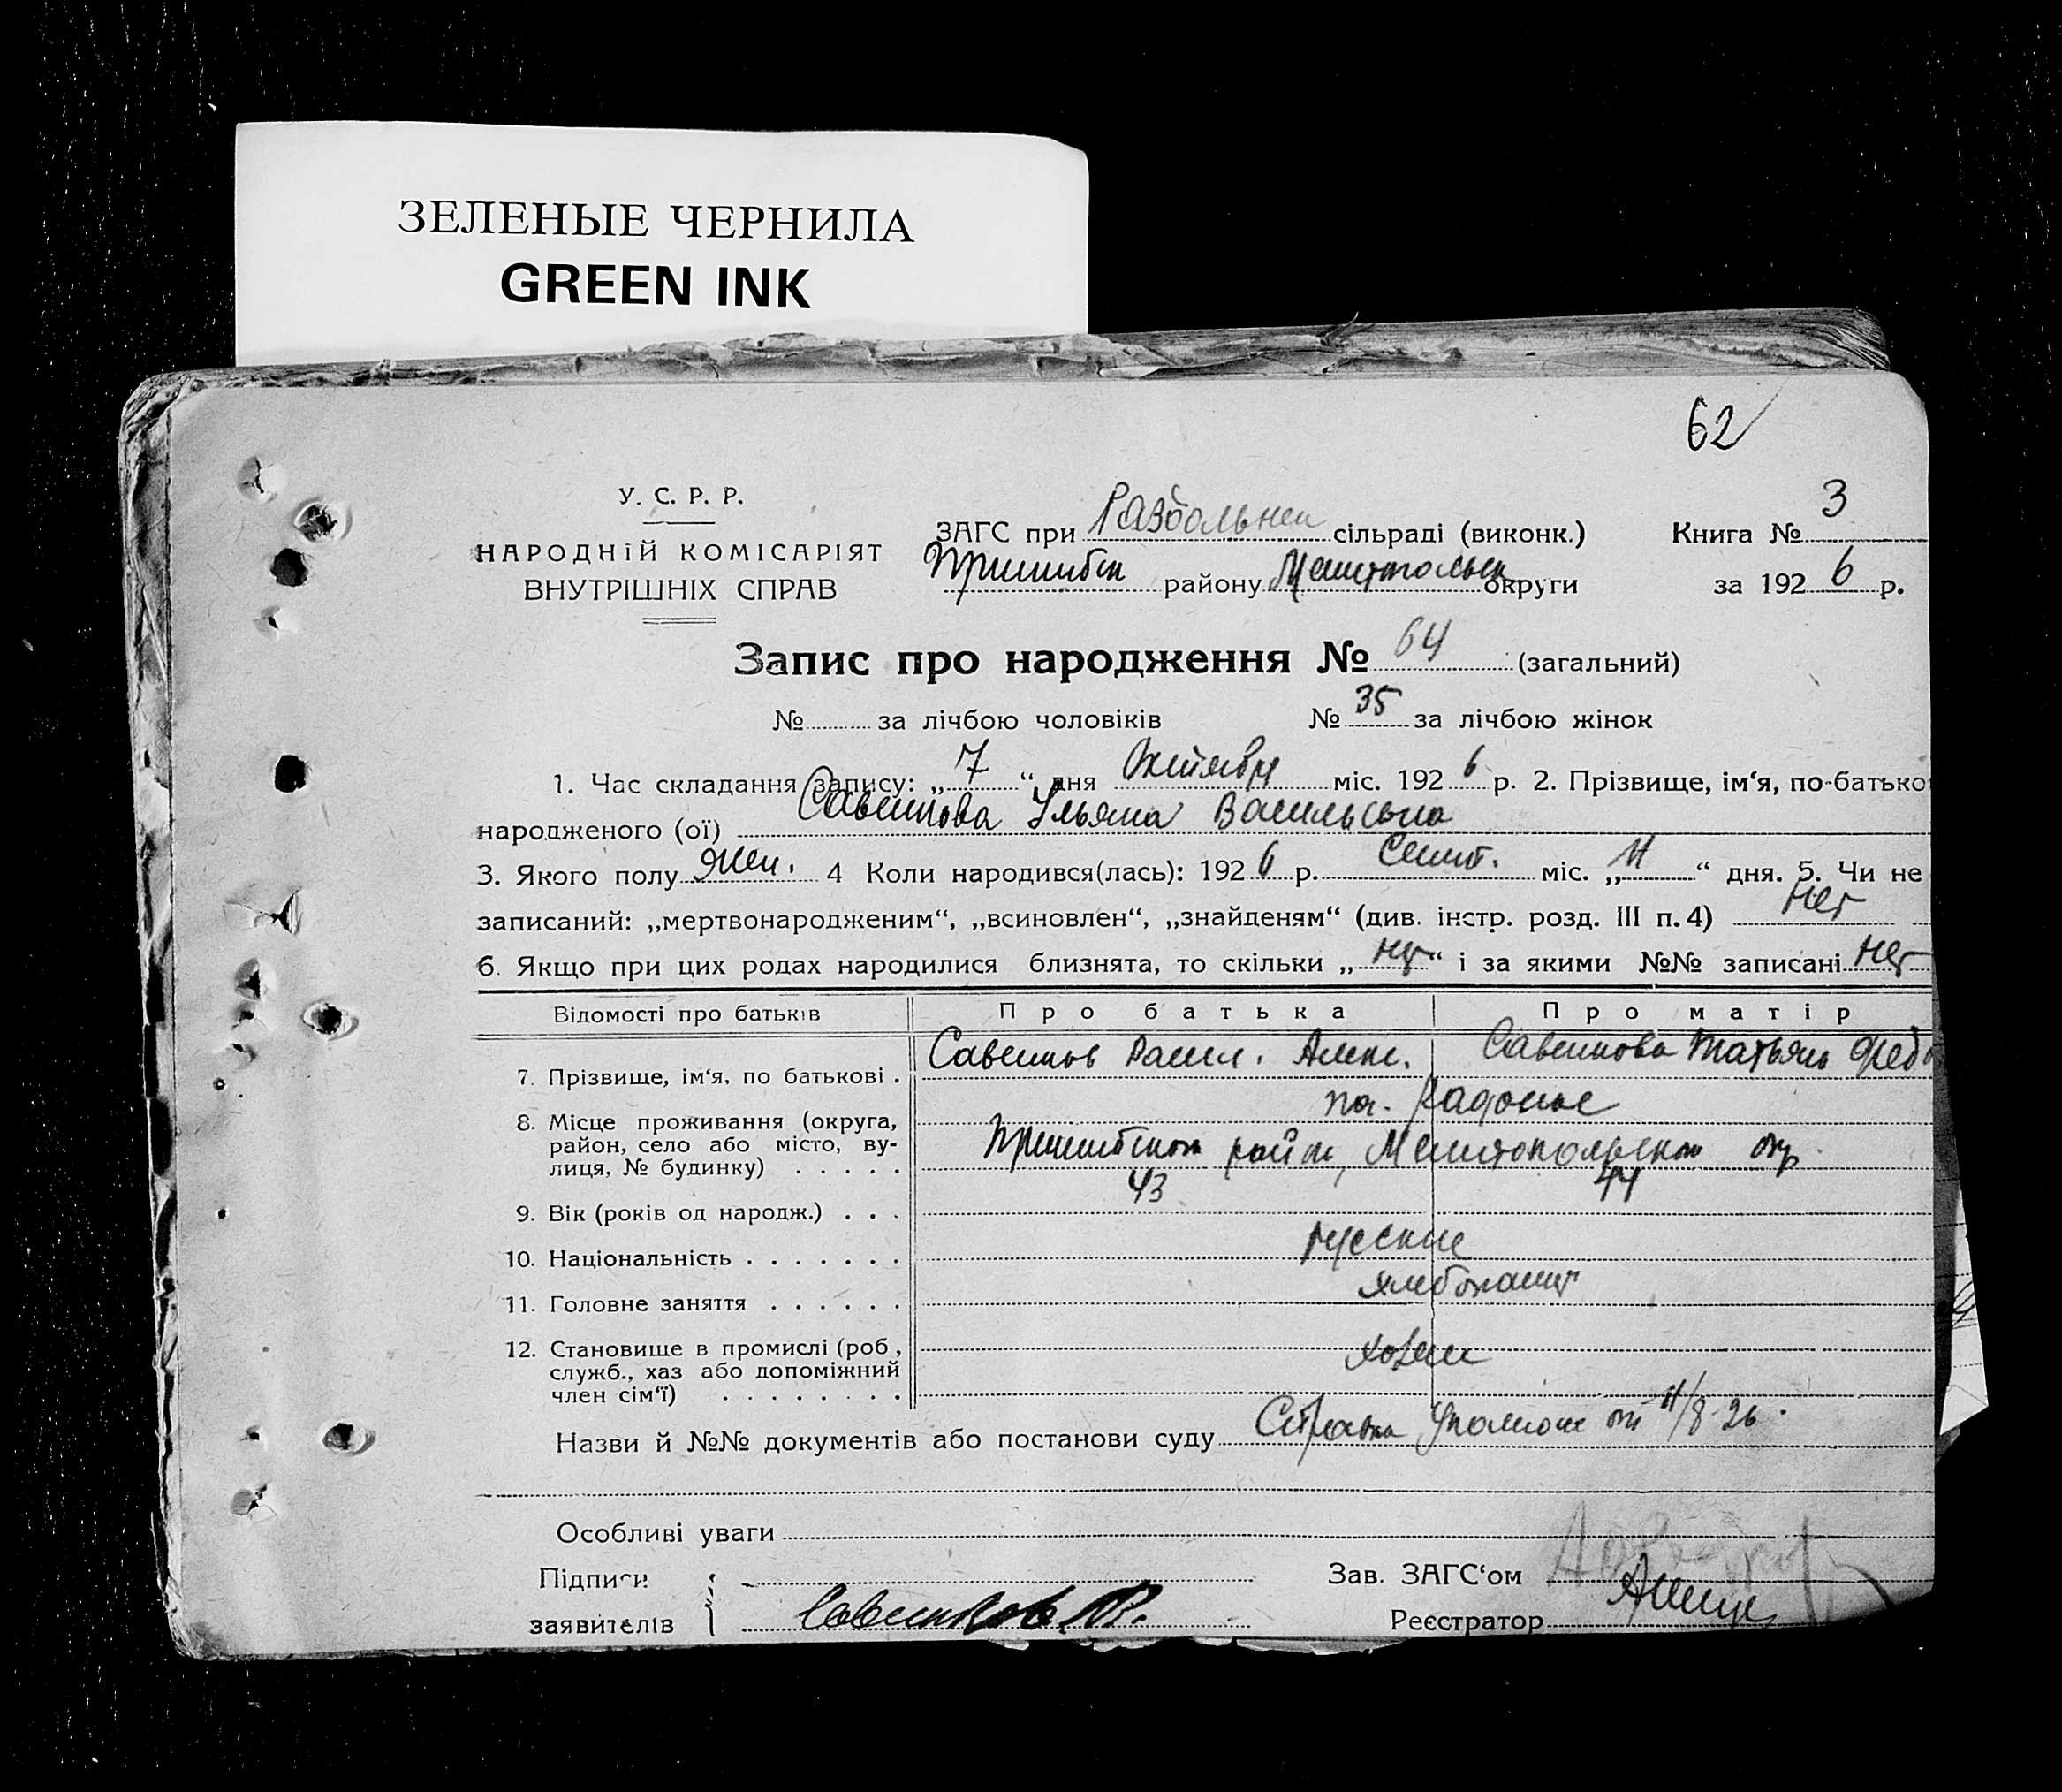 ЗЕЛЕНЫЕ ЧЕРНИЛА
GREEN INK
62
У. С. Р. Р.
НАРОДНІЙ КОМІСАРІЯТ
ВНУТРІШНІХ СПРАВ
ЗАГС при сільраді (виконк.)
Пришибск району Мелитопольск округи
Книга № 3
за 1926 р.
Запис про народження № 64 (загальний)
№ за лічбою чоловіків № 35 за лічбою жінок
1. Час складання запису: „7“ дня Октября міс. 1926 р. 2. Прізвище, ім‘я, по-батько
народженого (ої) Савенкова Ульяна Васильевна
3. Якого полу жен. 4 Коли народився(лась): 1926 р. Сент. міс. „11“ дня. 5. Чи не
записаний: „мертвонародженим“, „всиновлен“, „знайденям“ (див. інстр. розд. III п. 4) Нет
6. Якщо при цих родах народилися близнята, то скільки „нет“ і за якими №№ записані нет
Відомості про батьків Про батька Про матір
7. Прізвище, ім‘я, по батькові . Савенков Васил. Алекс. Савенкова Татьяна Федо
8. Місце проживання (округа, район, село або місто, вулиця, № будинку) . . . . .
Пришибского района, Мелитопольского окр.
9. Вік (років од народж.) . . . 43 44
10. Національність . . . . . . . русские
11. Головне заняття . . . . . . хлебопашец
12. Становище в промислі (роб., служб., хаз або допоміжний член сім‘ї) . . . . . . . . хозяин
Назви й №№ документів або постанови суду Справка от 11/8-26.
Особливі уваги
Підписи
заявителів Савенков В.
Зав. ЗАГС‘ом
Реєстратор